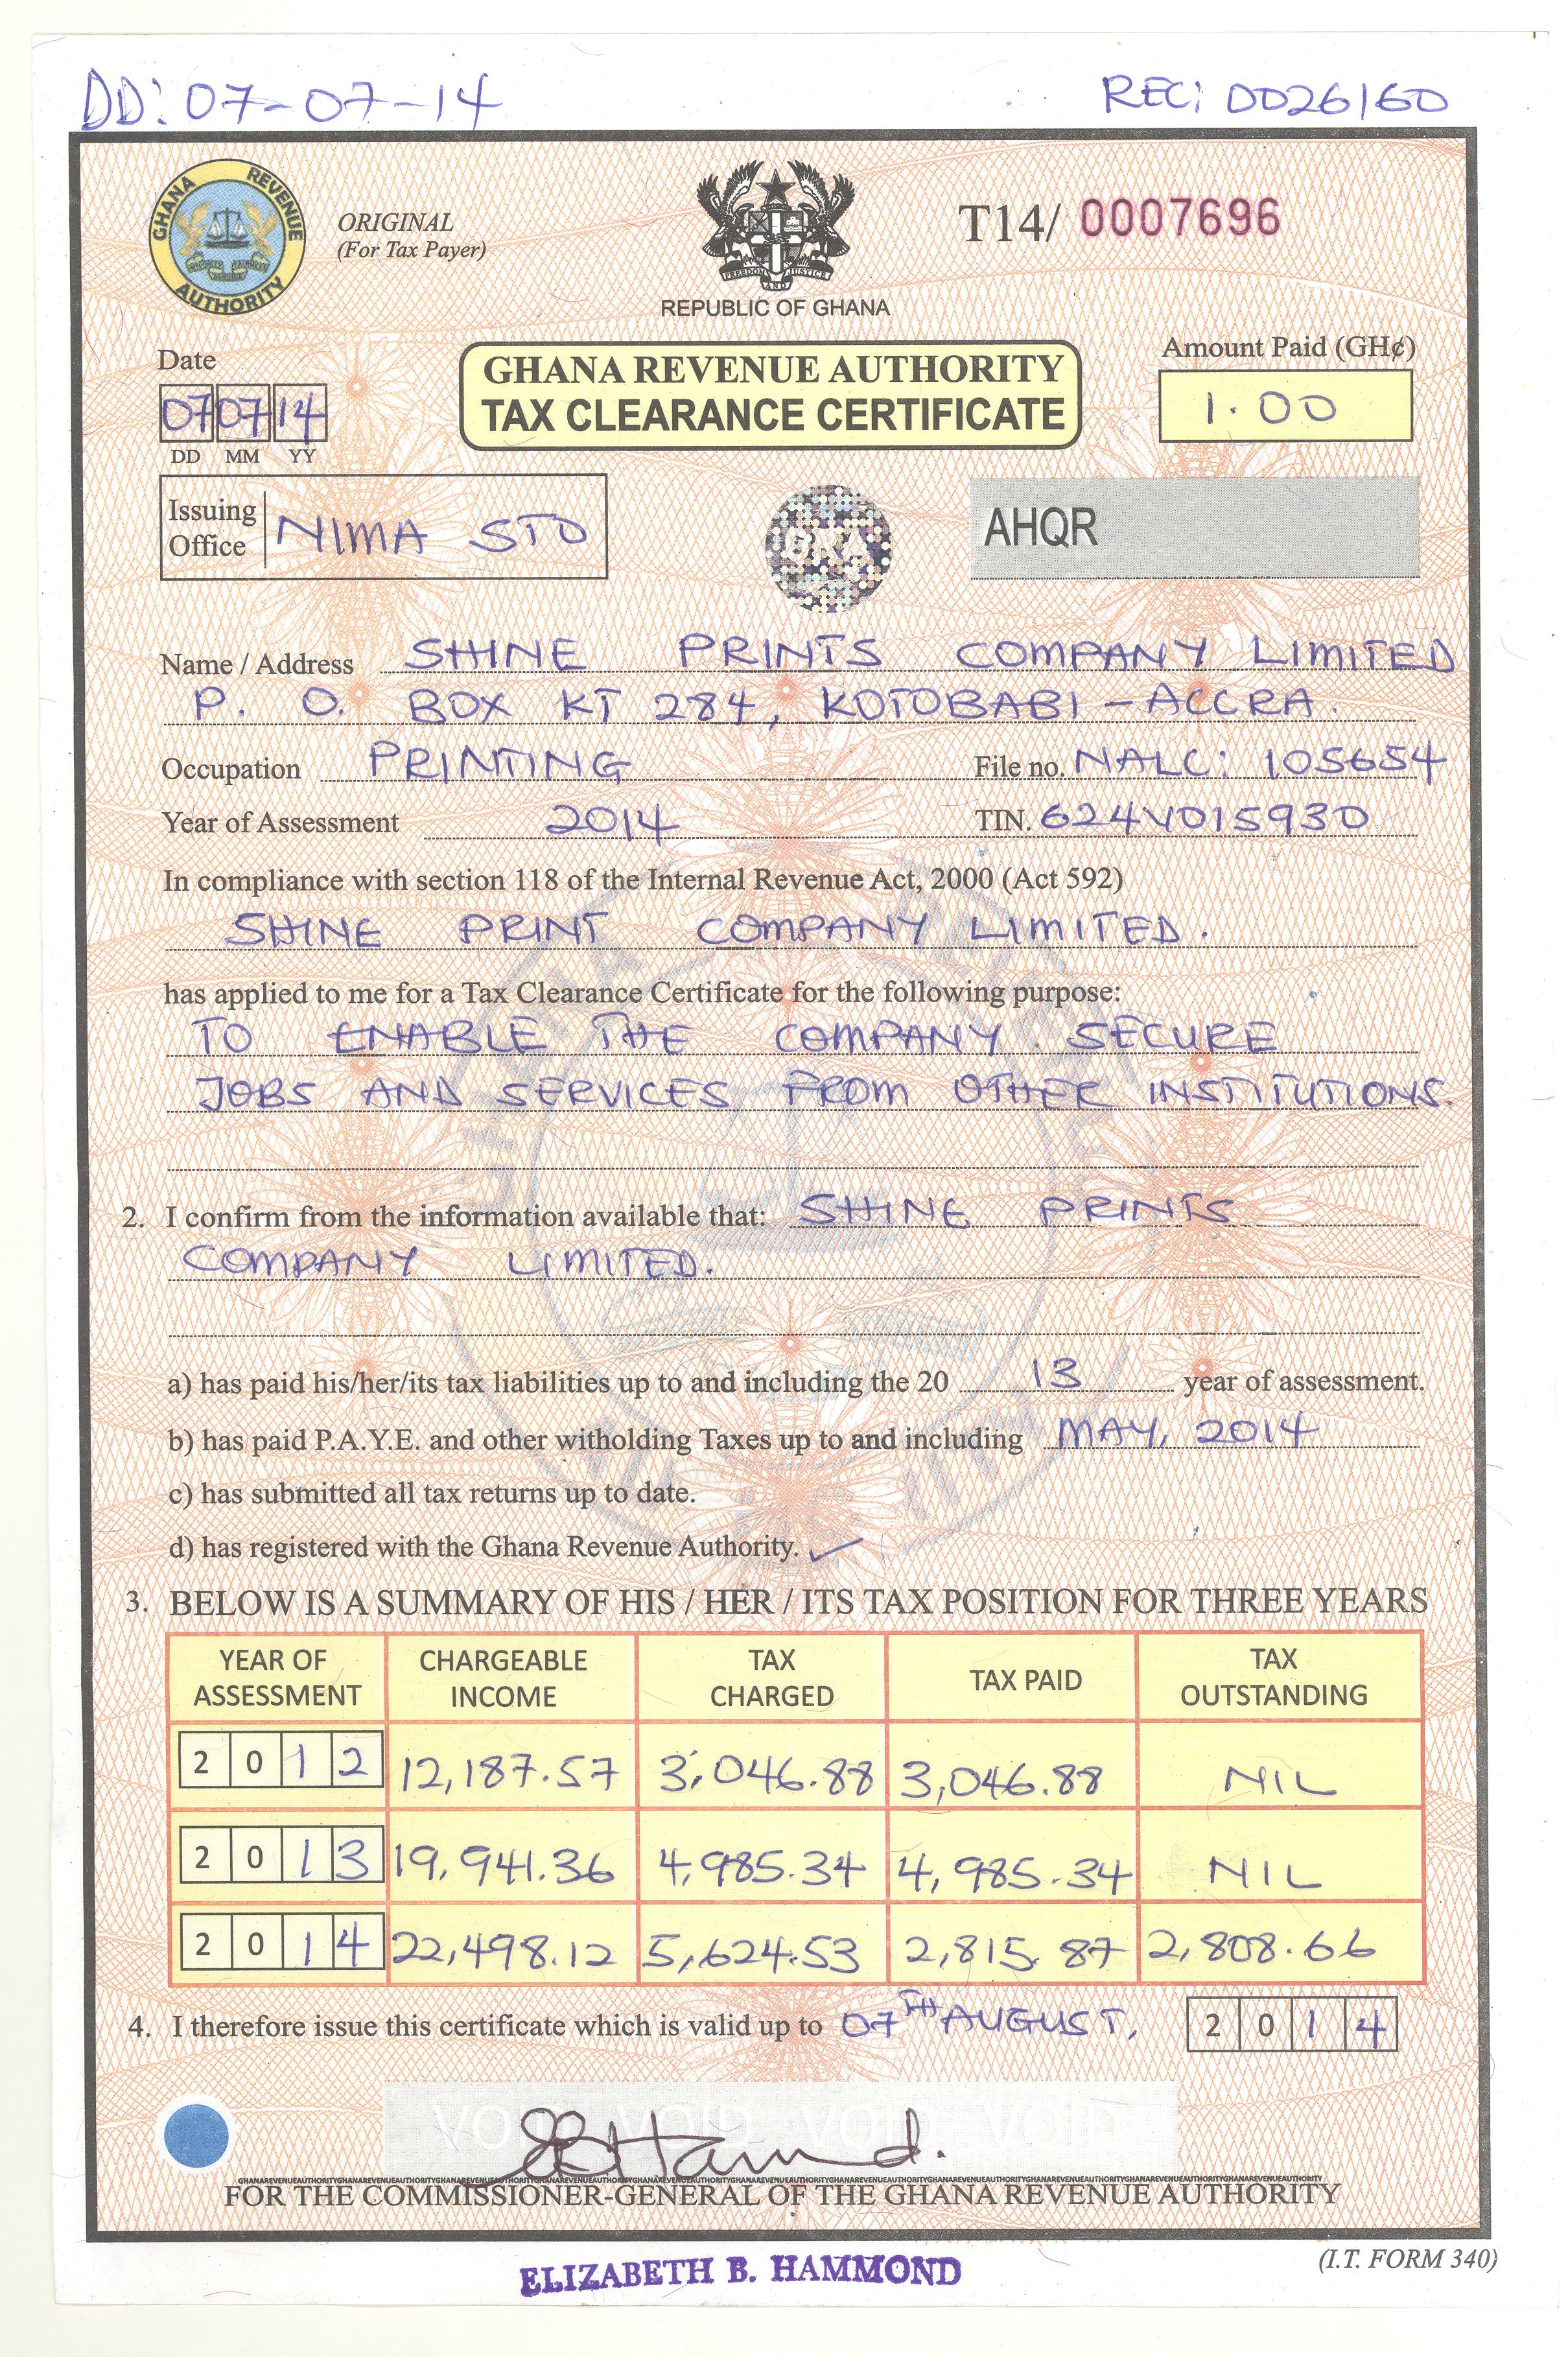 DD: 07-07-14
REC: 0026160
GHANA REVENUE AUTHORITY
ORIGINAL
(For Tax Payer)
FREEDOM AND JUSTICE
REPUBLIC OF GHANA
T14/ 0007696
Date
07 07 14
DD MM YY
GHANA REVENUE AUTHORITY
TAX CLEARANCE CERTIFICATE
Amount Paid (GH¢)
1.00
Issuing Office NIMA STO
GRA
AHQR
Name / Address SHINE PRINTS COMPANY LIMITED
P. O. BOX KT 284, KOTOBABI - ACCRA.
Occupation PRINTING File no. NALC: 105654
Year of Assessment 2014 TIN. 624V015930
In compliance with section 118 of the Internal Revenue Act, 2000 (Act 592)
SHINE PRINT COMPANY LIMITED.
has applied to me for a Tax Clearance Certificate for the following purpose:
TO ENABLE THE COMPANY SECURE
JOBS AND SERVICES FROM OTHER INSTITUTIONS.
2. I confirm from the information available that: SHINE PRINTS
COMPANY LIMITED.
a) has paid his/her/its tax liabilities up to and including the 20 13 year of assessment.
b) has paid P.A.Y.E. and other witholding Taxes up to and including MAY, 2014
c) has submitted all tax returns up to date.
d) has registered with the Ghana Revenue Authority. ✓
3. BELOW IS A SUMMARY OF HIS / HER / ITS TAX POSITION FOR THREE YEARS
YEAR OF ASSESSMENT CHARGEABLE INCOME TAX CHARGED TAX PAID TAX OUTSTANDING
2012 12,187.57 3,046.88 3,046.88 NIL
2013 19,941.36 4,985.34 4,985.34 NIL
2014 22,498.12 5,624.53 2,815.87 2,808.66
4. I therefore issue this certificate which is valid up to 07TH AUGUST, 2014
VOID VOID VOID VOID
FOR THE COMMISSIONER-GENERAL OF THE GHANA REVENUE AUTHORITY
ELIZABETH B. HAMMOND
(I.T. FORM 340)